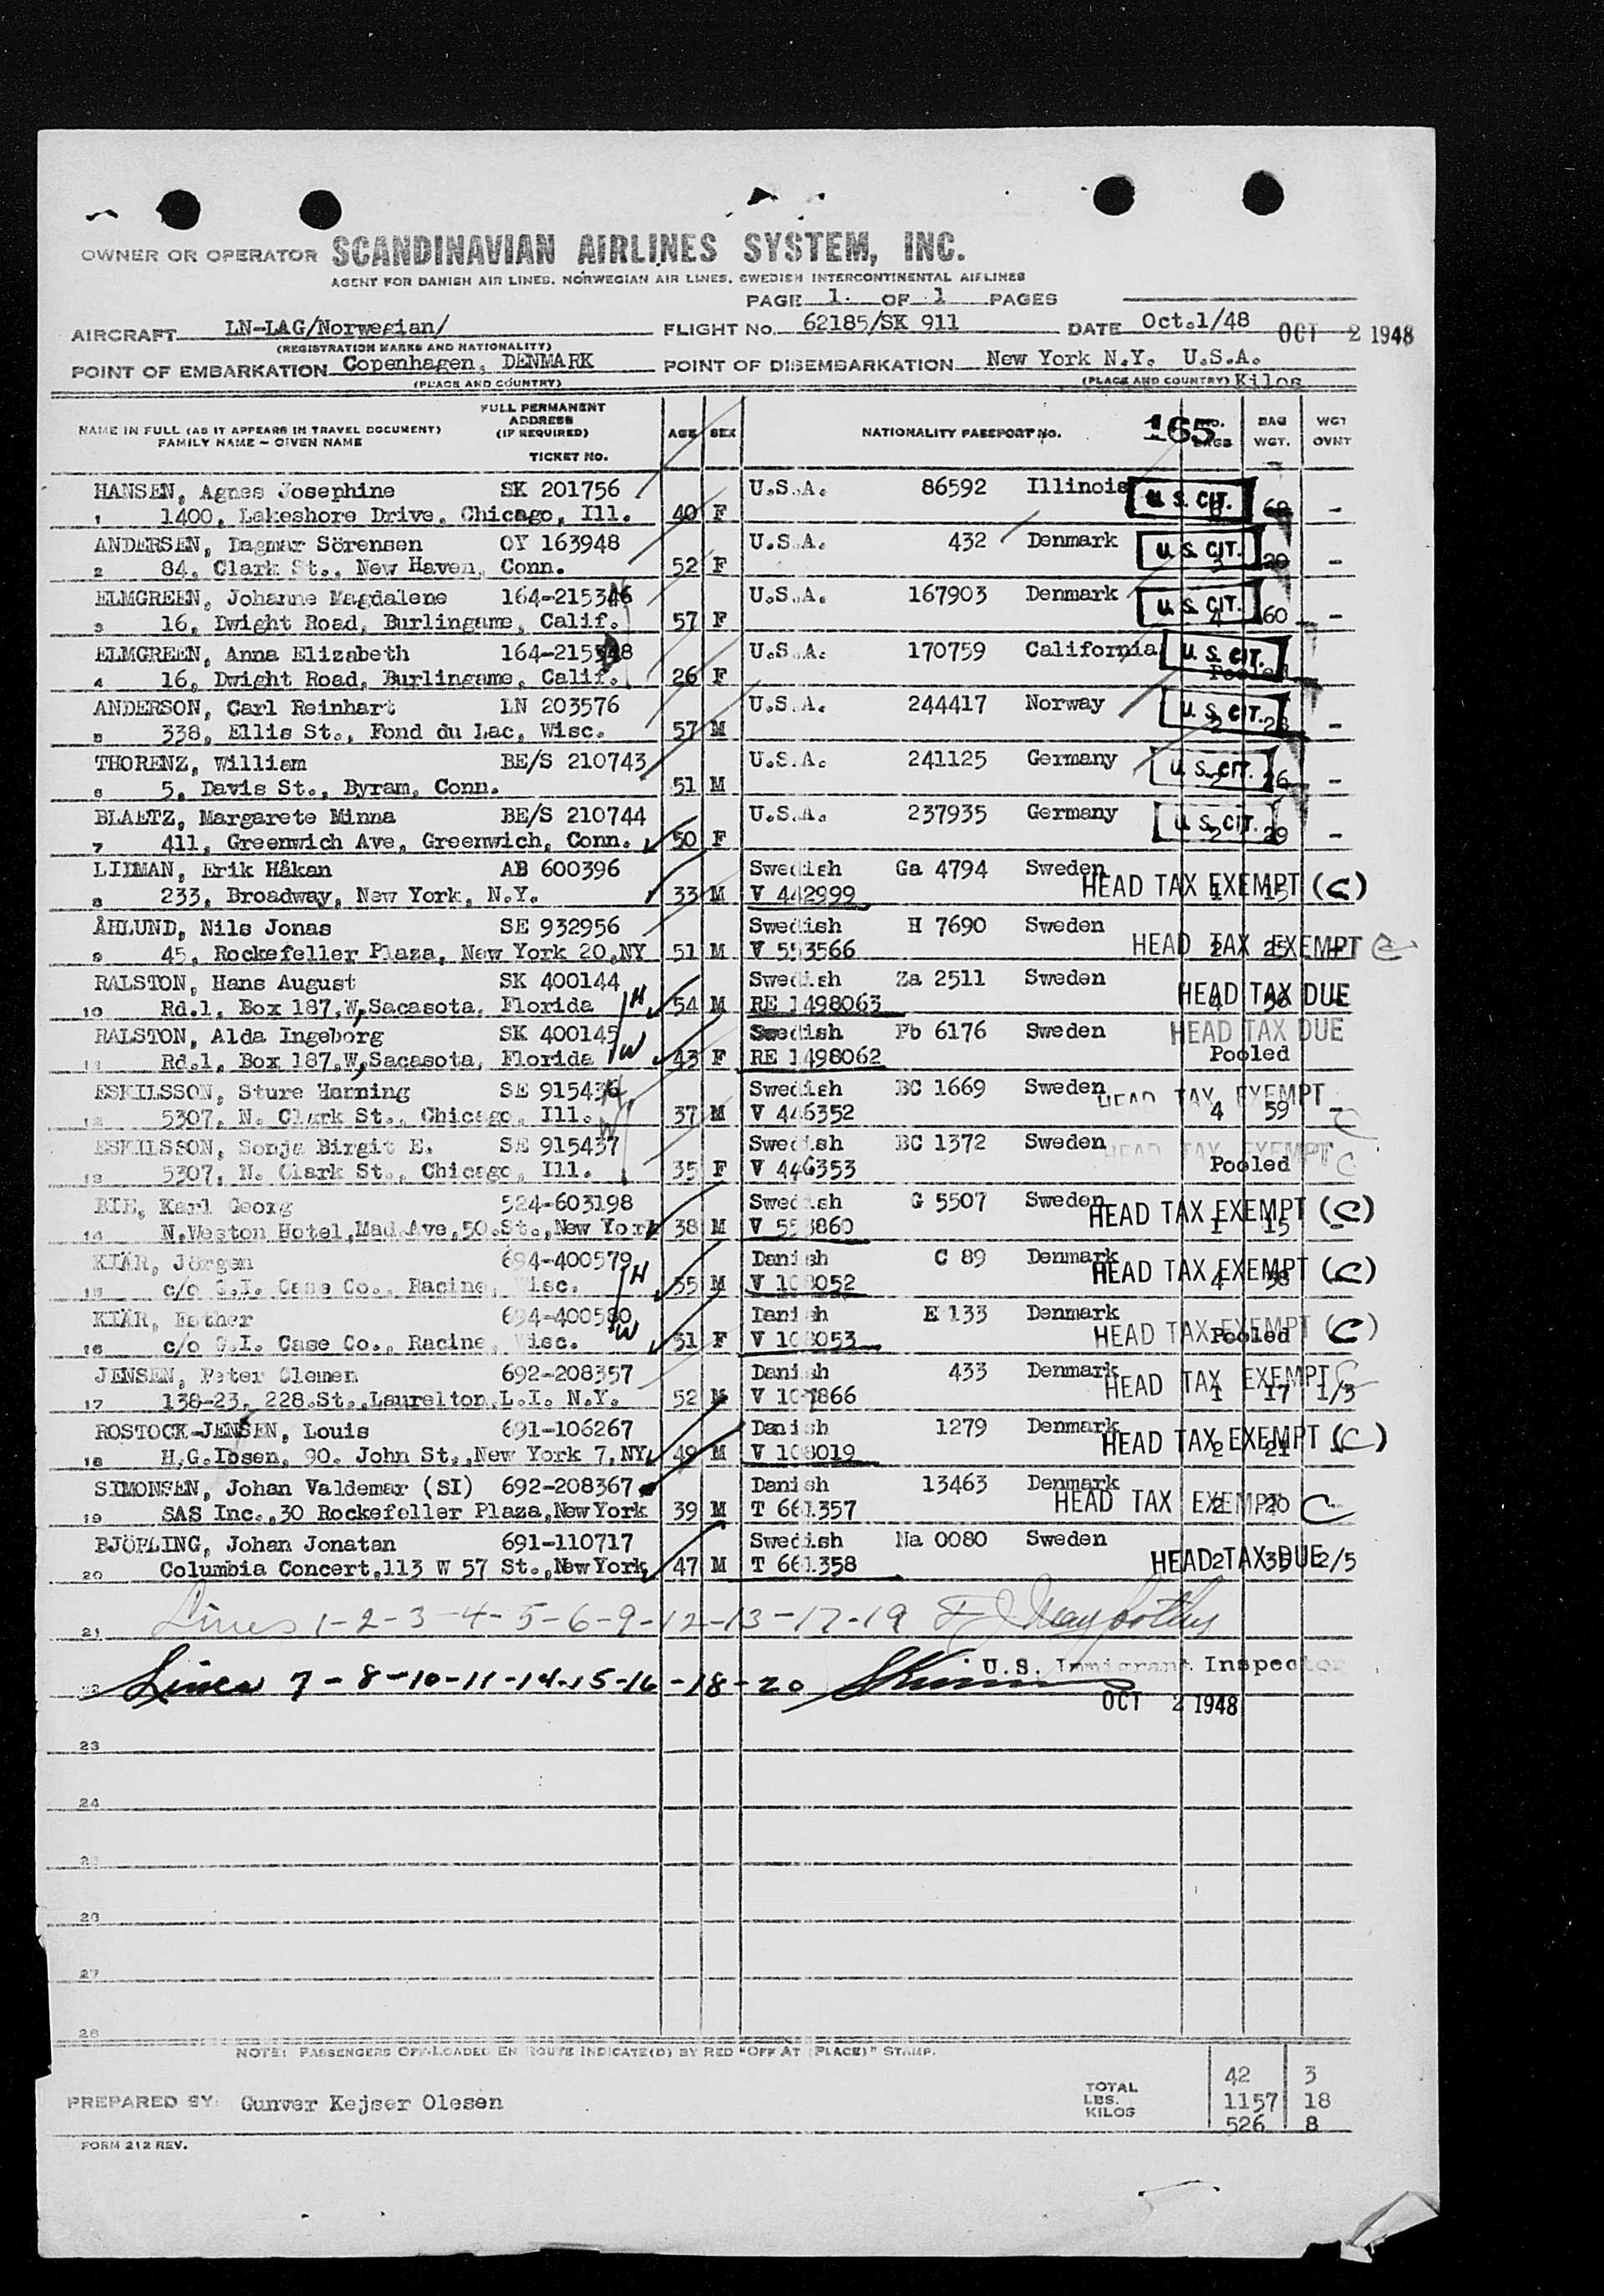 OWNER OR OPERATOR SCANDINAVIAN AIRLINES SYSTEM, INC.
AGENT FOR DANISH AIR LINES, NORWEGIAN AIR LINES, SWEDISH INTERCONTINENTAL AIRLINES
PAGE 1. OF 1 PAGES
AIRCRAFT LN-LAG/Norwegian/ FLIGHT No. 62185/SK 911 DATE Oct.1/48 OCT 2 1948
(REGISTRATION MARKS AND NATIONALITY)
POINT OF EMBARKATION Copenhagen, DENMARK POINT OF DISEMBARKATION New York N.Y. U.S.A.
(PLACE AND COUNTRY) (PLACE AND COUNTRY) Kilos
NAME IN FULL (AS IT APPEARS IN TRAVEL DOCUMENT) FAMILY NAME - GIVEN NAME FULL PERMANENT ADDRESS (IF REQUIRED) TICKET NO. AGE SEX NATIONALITY PASSPORT NO. 165 NO. BAGS BAG WGT. WGT OVNT
HANSEN, Agnes Josephine SK 201756 U.S.A. 86592 Illinois U.S. CIT.
1 1400, Lakeshore Drive, Chicago, Ill. 40 F -
ANDERSEN, Dagmar Sörensen OY 163948 U.S.A. 432 Denmark U.S. CIT.
2 84, Clark St., New Haven, Conn. 52 F 3 -
ELMGREEN, Johanne Magdalene 164-215346 U.S.A. 167903 Denmark U.S. CIT.
3 16, Dwight Road, Burlingame, Calif. 57 F 4 60 -
ELMGREEN, Anna Elizabeth 164-215348 U.S.A. 170759 California U.S. CIT.
4 16, Dwight Road, Burlingame, Calif. 26 F Pooled
ANDERSON, Carl Reinhart LN 203576 U.S.A. 244417 Norway U.S. CIT.
5 338, Ellis St., Fond du Lac, Wisc. 57 M 2 -
THORENZ, William BE/S 210743 U.S.A. 241125 Germany U.S. CIT.
6 5, Davis St., Byram, Conn. 51 M 2 26 -
BLAETZ, Margarete Minna BE/S 210744 U.S.A. 237935 Germany U.S. CIT.
7 411, Greenwich Ave, Greenwich, Conn. 50 F 2 29 -
LIDMAN, Erik Håkan AB 600396 Swedish Ga 4794 Sweden
8 233, Broadway, New York, N.Y. 33 M V 442999 HEAD TAX EXEMPT (C) 1 15
ÅHLUND, Nils Jonas SE 932956 Swedish H 7690 Sweden
9 45, Rockefeller Plaza, New York 20,NY 51 M V 553566 HEAD TAX EXEMPT C 2 25
RALSTON, Hans August SK 400144 Swedish Za 2511 Sweden
10 Rd.1, Box 187,W,Sacasota, Florida H 54 M RE 1498063 HEAD TAX DUE 4
RALSTON, Alda Ingeborg SK 400145 Swedish Pb 6176 Sweden HEAD TAX DUE
11 Rd.1, Box 187,W,Sacasota, Florida W 43 F RE 1498062 Pooled
ESKILSSON, Sture Hanning SE 915436 H Swedish BC 1669 Sweden HEAD TAX EXEMPT
12 5307, N. Clark St., Chicago, Ill. W 37 M V 446352 4 59 - C
ESKILSSON, Sonja Birgit E. SE 915437 Swedish BC 1372 Sweden HEAD TAX EXEMPT C
13 5307, N. Clark St., Chicago, Ill. 35 F V 446353 Pooled
BIE, Karl Georg 524-603198 Swedish G 5507 Sweden HEAD TAX EXEMPT (C)
14 N.Weston Hotel,Mad.Ave,50.St.,New York 38 M V 553860 1 15 -
KIÄR, Jörgen 694-400579 Danish C 89 Denmark HEAD TAX EXEMPT (C)
15 c/o G.I. Case Co., Racine, Wisc. H 55 M V 108052 4 58
KIÄR, Esther 694-400580 Danish E 133 Denmark
16 c/o G.I. Case Co., Racine, Wisc. W 51 F V 108053 HEAD TAX EXEMPT (C) Pooled
JENSEN, Peter Clemen 692-208357 Danish 433 Denmark HEAD TAX EXEMPT C
17 138-23, 228.St.,Laurelton,L.I. N.Y. 52 M V 107866 1 17 1/3
ROSTOCK-JENSEN, Louis 691-106267 Danish 1279 Denmark HEAD TAX EXEMPT (C)
18 H.G.Ibsen, 90. John St.,New York 7,NY 49 M V 108019 2 21
SIMONSEN, Johan Valdemar (SI) 692-208367 Danish 13463 Denmark HEAD TAX EXEMPT C
19 SAS Inc.,30 Rockefeller Plaza,New York 39 M T 661357 2 20
BJÖRLING, Johan Jonatan 691-110717 Swedish Na 0080 Sweden
20 Columbia Concert,113 W 57 St.,New York 47 M T 661358 HEAD TAX DUE 2 39 2/5
21 Lines 1-2-3-4-5-6-9-12-13-17-19
U.S. Immigrant Inspector
22 Lines 7-8-10-11-14-15-16-18-20
OCT 2 1948
23
24
25
26
27
28
NOTE: PASSENGERS OFF-LOADED EN ROUTE INDICATE(D) BY RED "OFF AT (PLACE)" STAMP.
42 3
PREPARED BY: Gunver Kejser Olesen TOTAL LBS. KILOS 1157 18
526 8
FORM 212 REV.